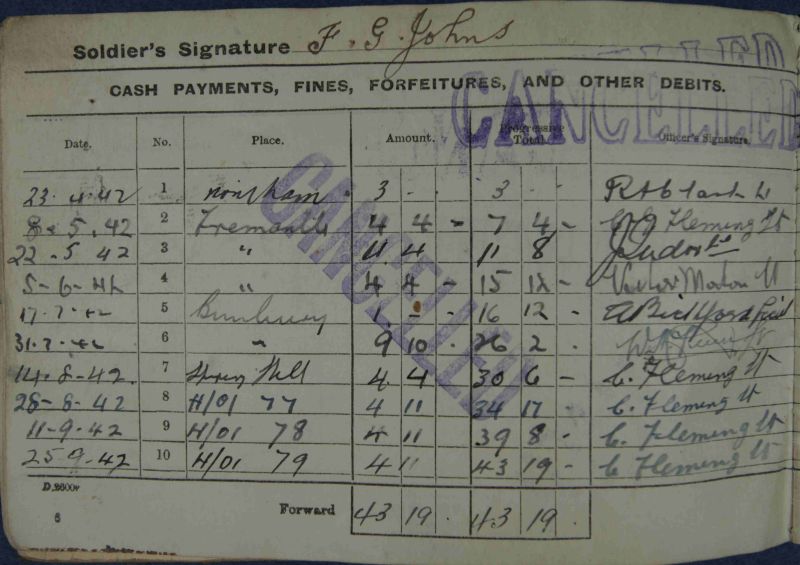 Soldier's Signature F. G. Johns
CANCELLED
CASH PAYMENTS, FINES, FORFEITURES, AND OTHER DEBITS.
Date. No. Place. Amount. Progressive Total. Officer's Signature.
23.4.42 1 3 - - 3 - -
8.5.42 2 Fremantle 4 4 - 7 4 - Fleming Lt
22.5.42 3 " 4 4 11 8
5-6-42 4 " 4 4 - 15 12 -
17.7.42 5 Bunbury 1 - - 16 12 -
31.7.42 6 " 9 10 - 26 2 .
14.8.42. 7 Hill 4 4 30 6 - C. Fleming Lt
28-8-42 8 H/01 77 4 11 34 17 C. Fleming Lt
11-9-42 9 H/01 78 4 11 39 8 - C. Fleming Lt
25.9.42 10 H/01 79 4 11 43 19 - C Fleming Lt
CANCELLED
D.2600v
Forward 43 19 . 43 19 .
6